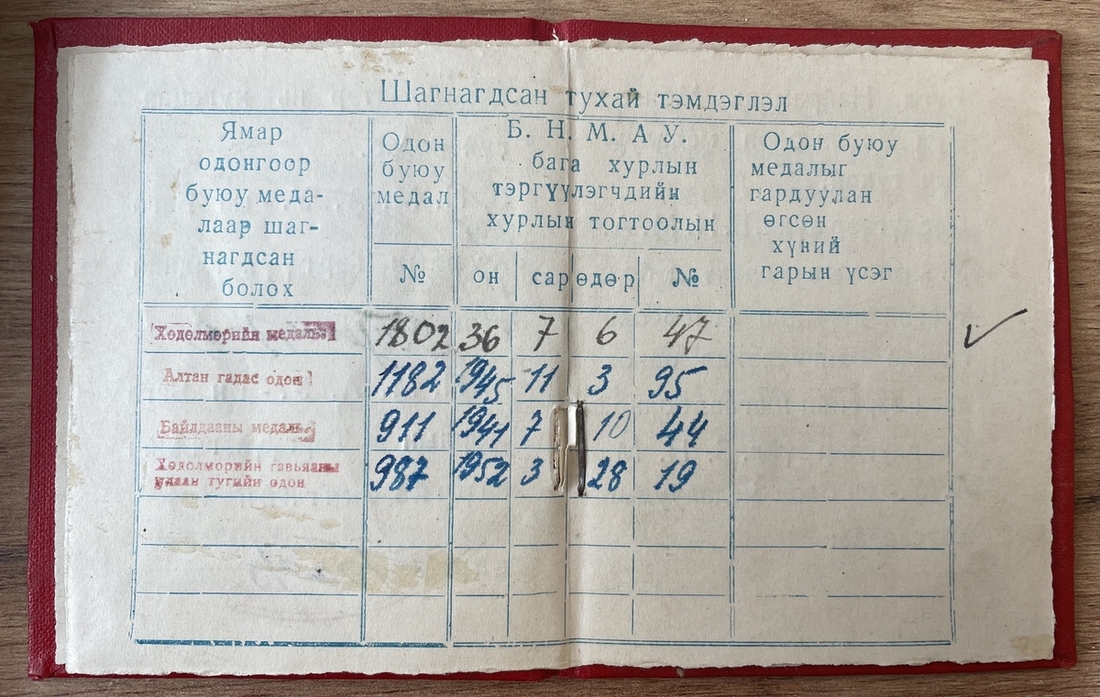 Шагнагдсан тухай тэмдэглэл
Ямар
одонгоор
буюу меда-
лаар шаг-
нагдсан
болох
Одон
буюу
медал
№
Б. Н. М. А У.
бага хурлын
тэргүүлэгчдийн
хурлын тогтоолын
он сар өдөр №
Одон буюу
медалыг
гардуулан
өгсөн
хүний
гарын үсэг
Хөдөлмөрийн медаль 1802 36 7 6 47
Алтан гадас одон 1182 1945 11 3 95
Байлдааны медаль 911 1941 7 10 44
Хөдөлмөрийн гавьяаны
улаан тугийн одон 987 1952 3 28 19